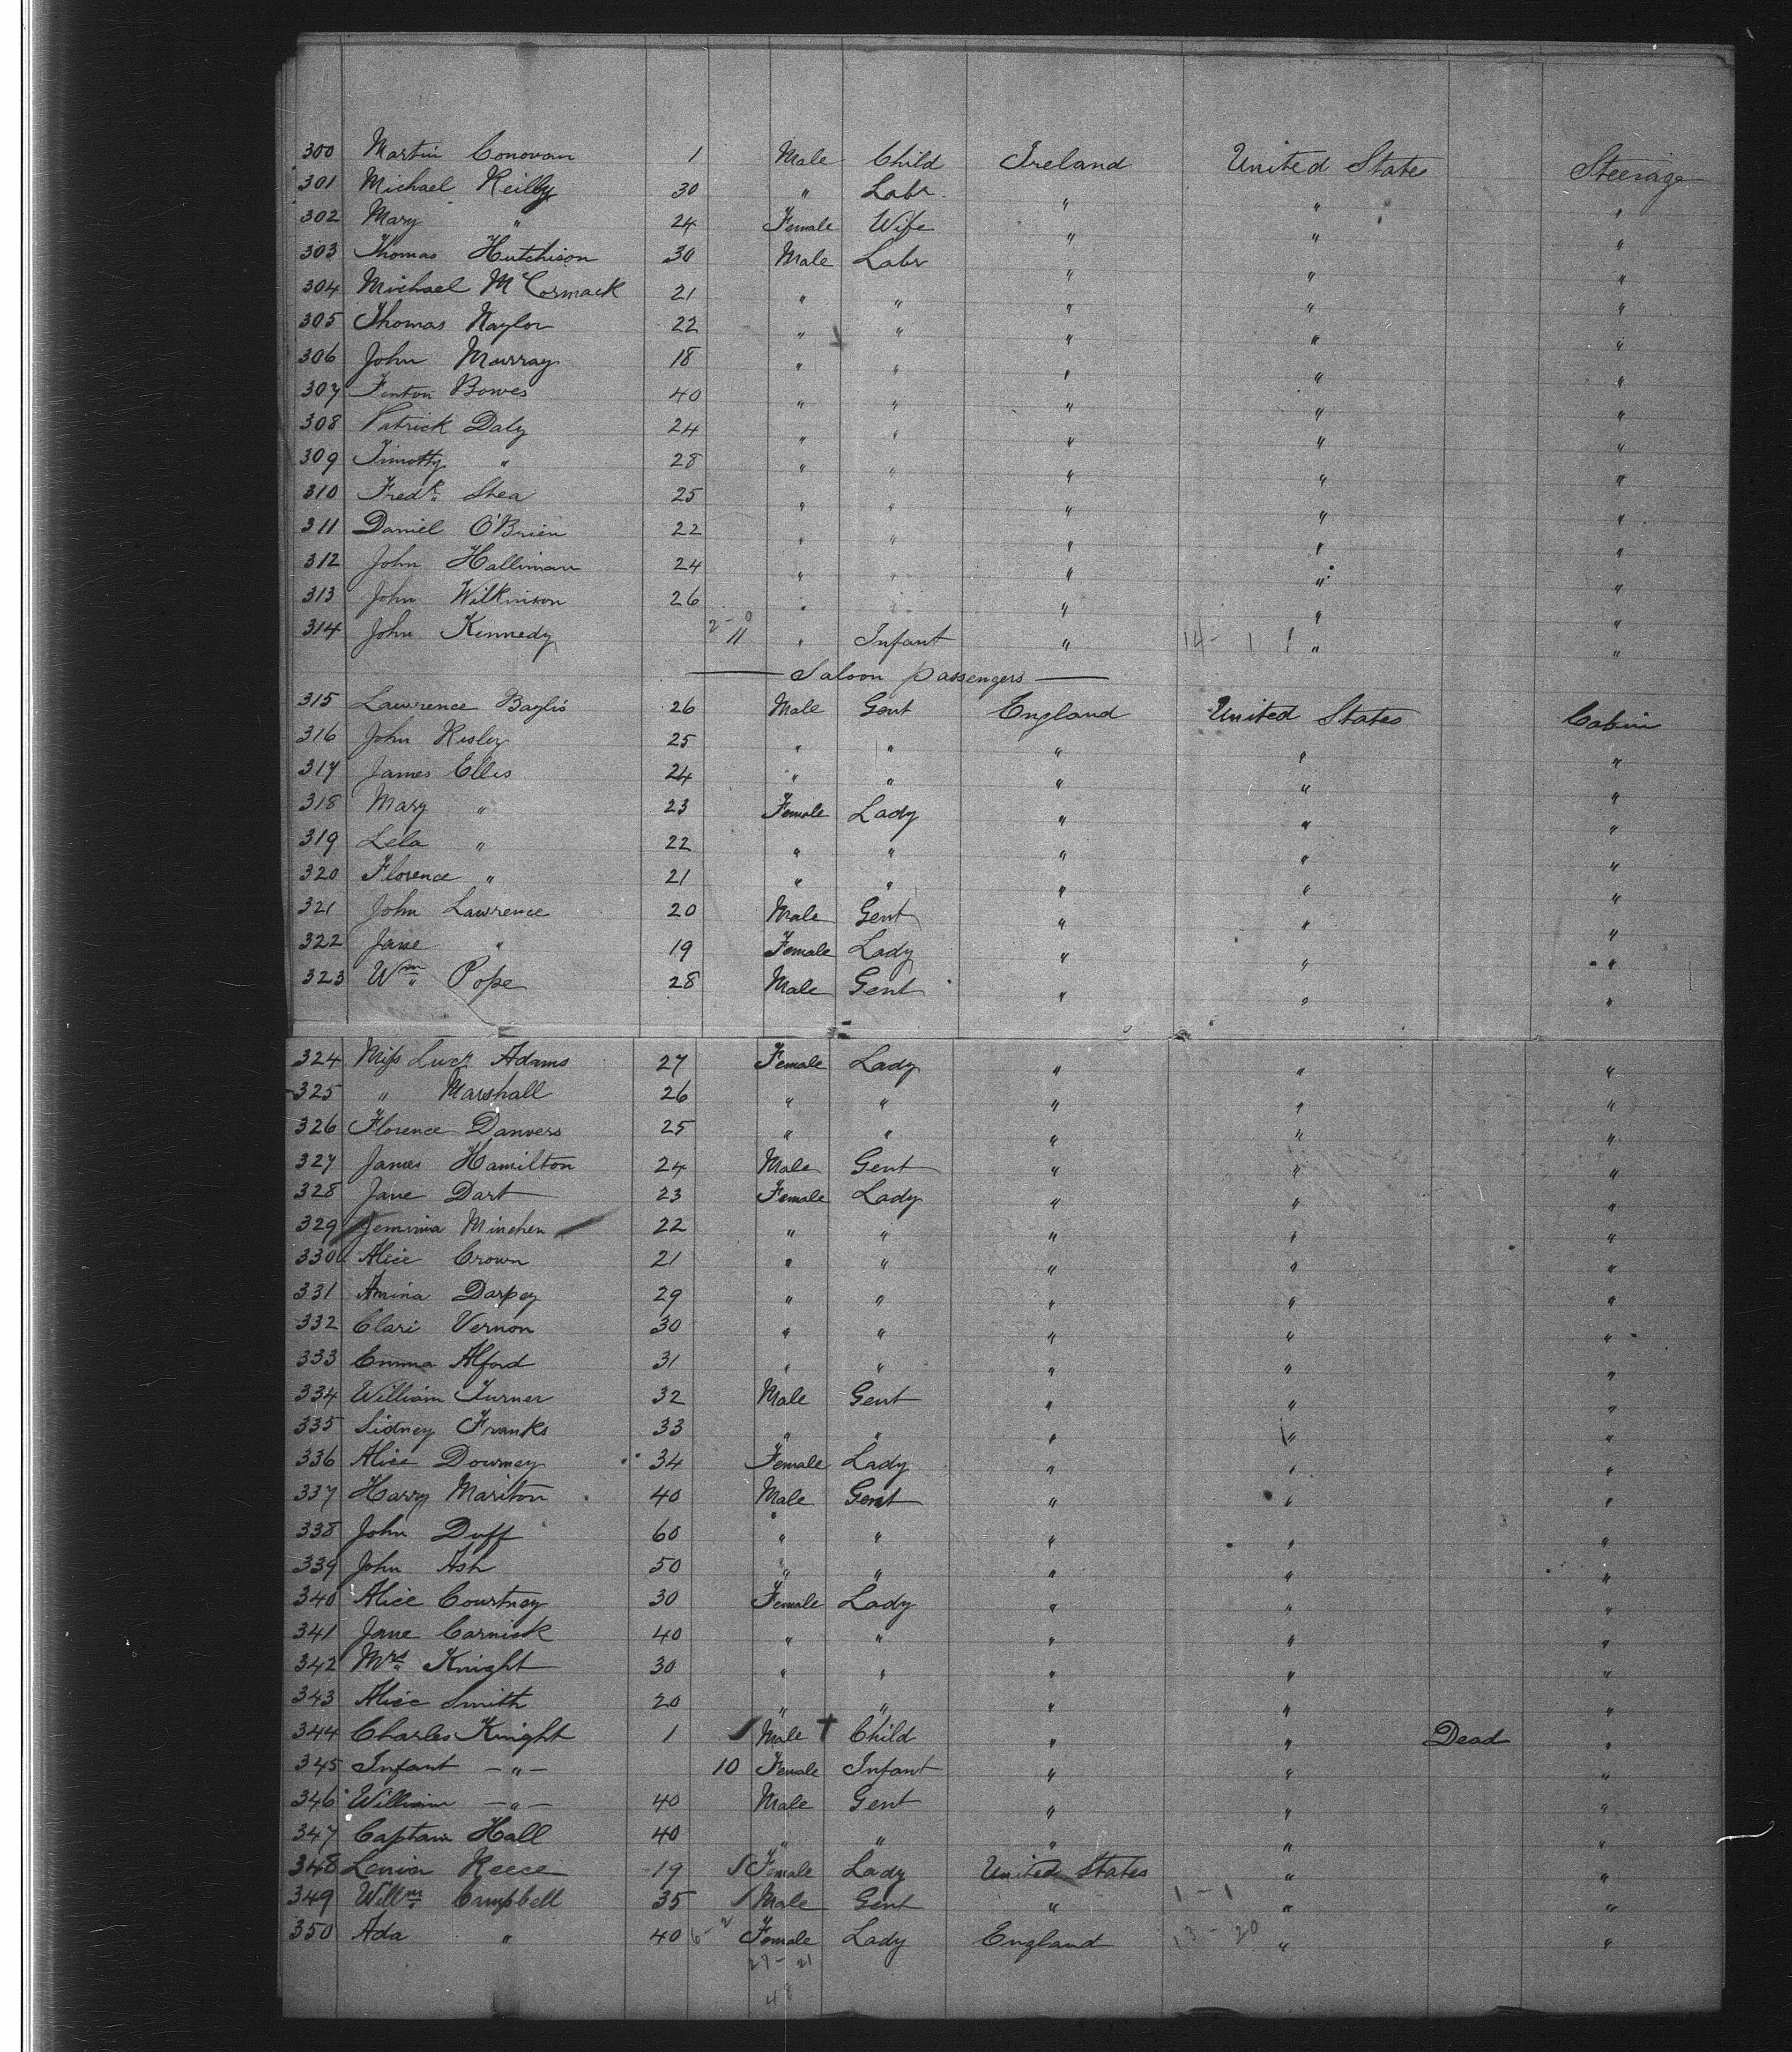 300 Martin Conovan 1 Male Child Ireland United States Steerage
301 Michael Reilly 30 " Labr " " "
302 Mary " 24 Female Wife " " "
303 Thomas Hutchison 30 Male Labr " " "
304 Michael McCormack 21 " " " " "
305 Thomas Naylor 22 " " " " "
306 John Murray 18 " " " " "
307 Fenton Bowes 40 " " " " "
308 Patrick Daly 24 " " " " "
309 Timothy " 28 " " " " "
310 Fredk. Shea 25 " " " " "
311 Daniel O'Brien 22 " " " " "
312 John Hallinan 24 " " " " "
313 John Wilkinson 26 " " " " "
314 John Kennedy 2-0 11 " Infant " 14- 1 1 " "
Saloon passengers
315 Lawrence Baylis 26 Male Gent England United States Cabin
316 John Risley 25 " " " " "
317 James Ellis 24 " " " " "
318 Mary " 23 Female Lady " " "
319 Lela " 22 " " " " "
320 Florence " 21 " " " " "
321 John Lawrence 20 Male Gent " " "
322 Jane " 19 Female Lady " " "
323 Wm Pope 28 Male Gent " " "
324 Miss Adams 27 Female Lady " " "
325 " Marshall 26 " " " " "
326 Florence Danvers 25 " " " " "
327 James Hamilton 24 Male Gent " " "
328 Jane Dart 23 Female Lady " " "
329 Jemima Minchen 22 " " " " "
330 Alice Crown 21 " " " " "
331 Amina Darpey 29 " " " " "
332 Clari Vernon 30 " " " " "
333 Emma Alford 31 " " " " "
334 William Turner 32 Male Gent " " "
335 Sidney Franks 33 " " " " "
336 Alice Downey 34 Female Lady " " "
337 Harry Mariton 40 Male Gent " " "
338 John Duff 60 " " " " "
339 John Ash 50 " " " " "
340 Alice Courtney 30 Female Lady " " "
341 Jane Carnick 40 " " " " "
342 Mrs Knight 30 " " " " "
343 Alice Smith 20 " " " " "
344 Charles Knight 1 Male † Child " " Dead "
345 Infant -"- 10 Female Infant " " "
346 William -"- 40 Male Gent " " "
347 Captain Hall 40 " " " " "
348 Reece 19 Female Lady United States " "
349 Willm Campbell 35 Male Gent " 1-1 " "
350 Ada " 40 6-2 Female Lady England 13-20 " "
27-21
48